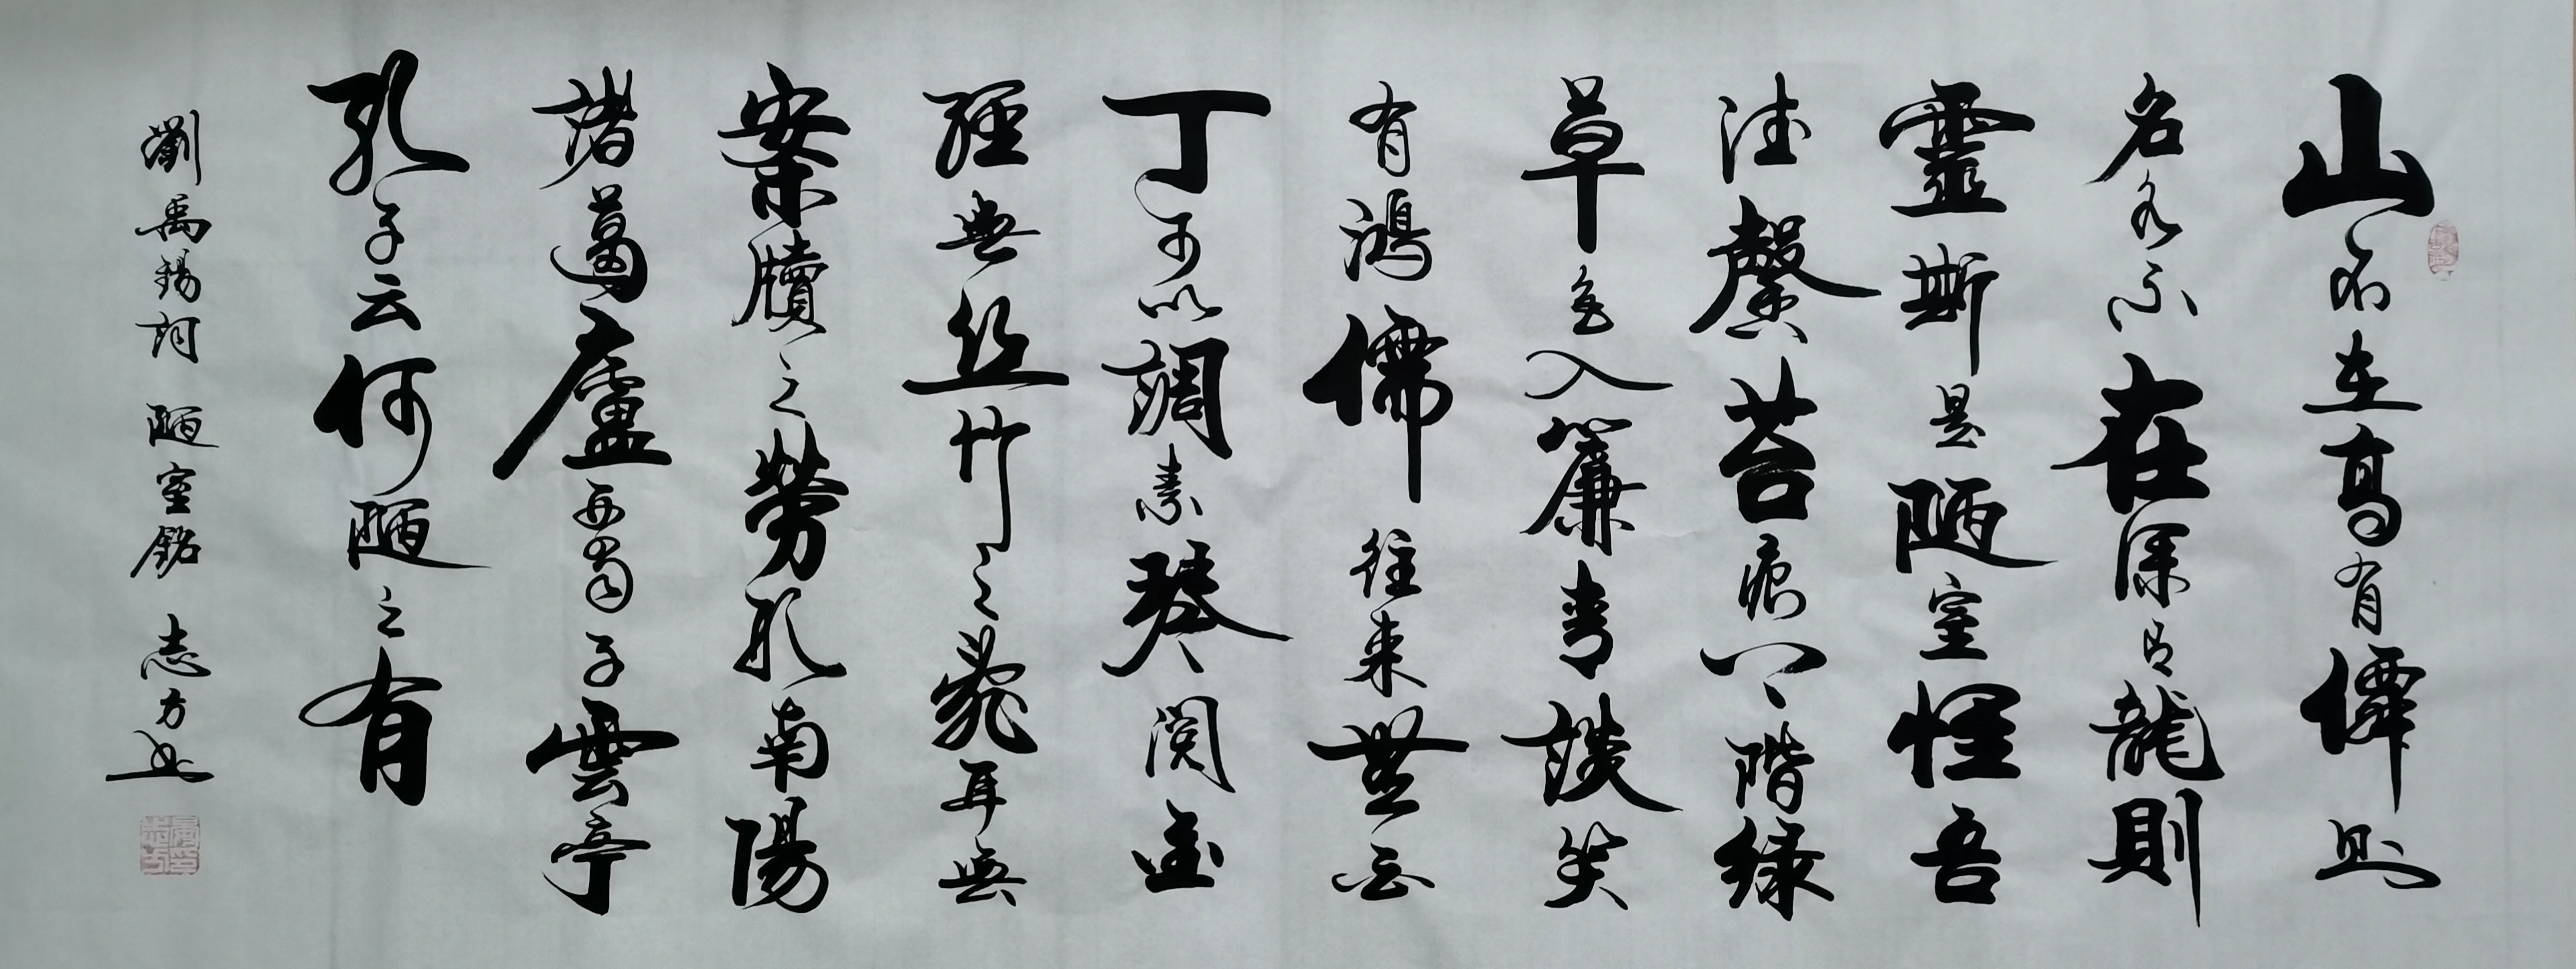 山不在高有僊則
名水不在深有龍則
靈斯是陋室惟吾
德馨苔痕上階緑
草色入簾青談笑
有鴻儒往來無白
丁可以調素琴閱金
經無丝竹之亂耳無
案牘之勞形南陽
諸葛廬西蜀子雲亭
孔子云何陋之有
劉禹錫詞 陋室銘 志方书